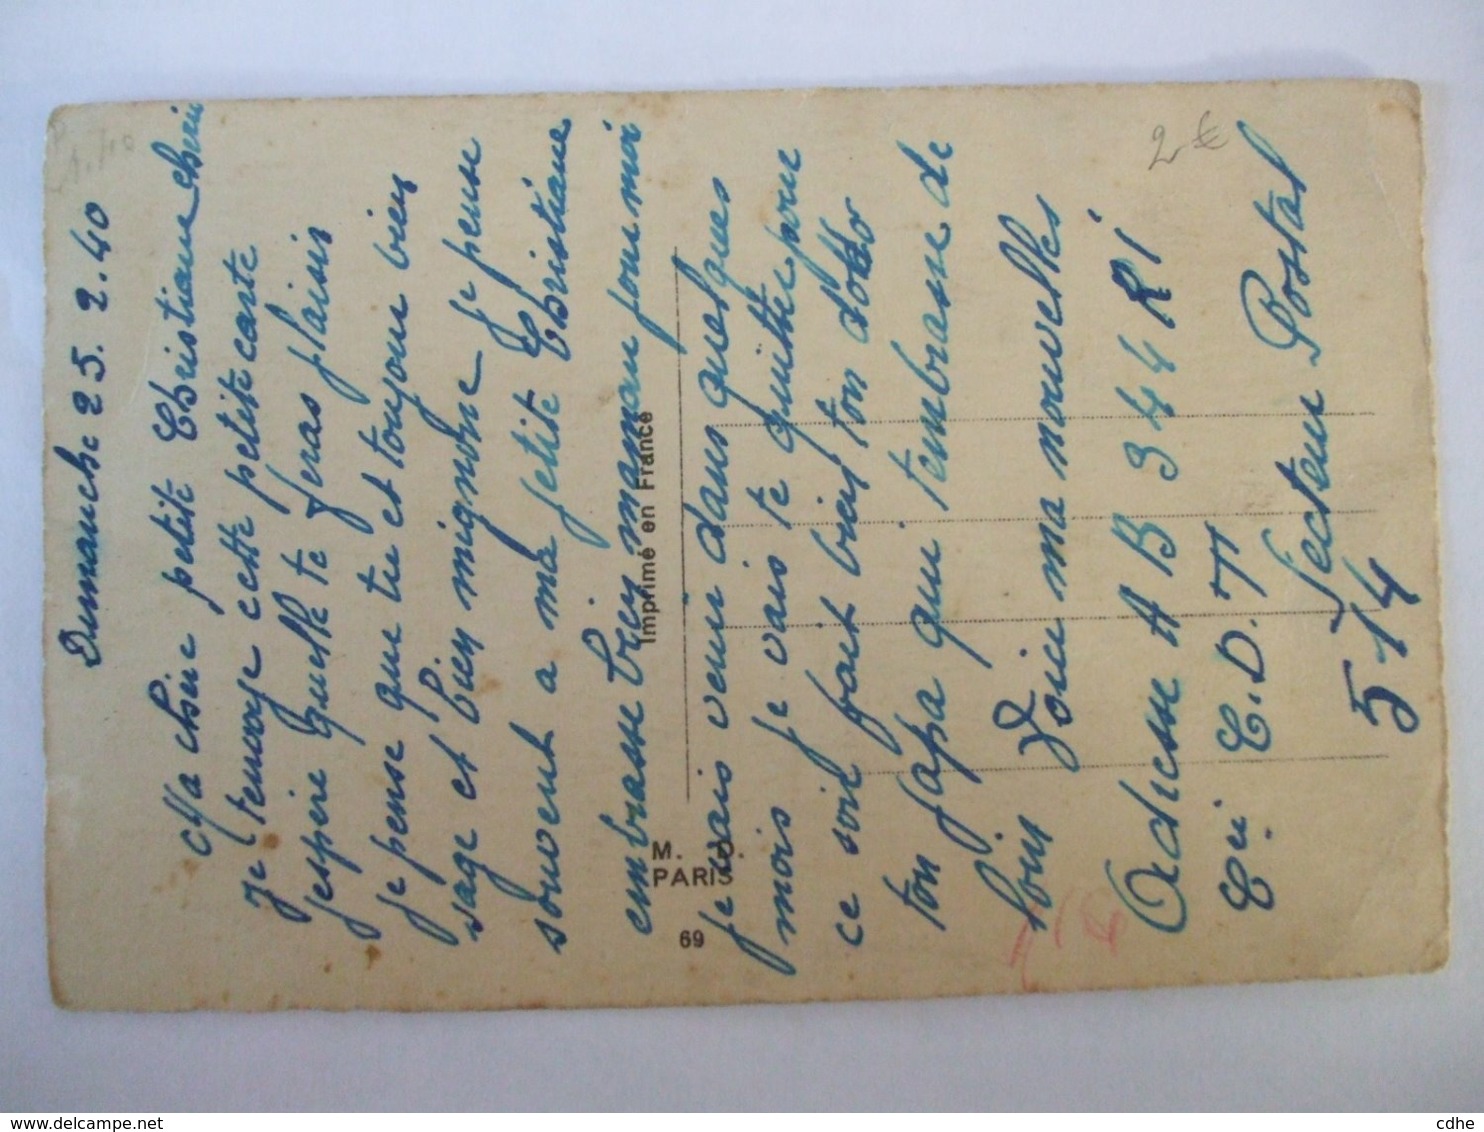 Dimanche 25.2.40
Ma chère petite Christiane chérie
je tenvoye cette petite carte
jespère quelle te feras plaisir
je pense que tu et toujour bien
sage et bien mignonne je pense
souvent a ma petite Christiane
embrasse bien maman pour moi
je vais venir dans quelques
mois je vais te quittée pour
ce soir fait bien ton dodo
ton papa qui tembrasse de
loin Voici ma nouvelles
Adresse A B 344 RI
Cie. C.D.T Secteur Postal
514
Imprimé en France
M. D.
PARIS
69
2 €
cdhe